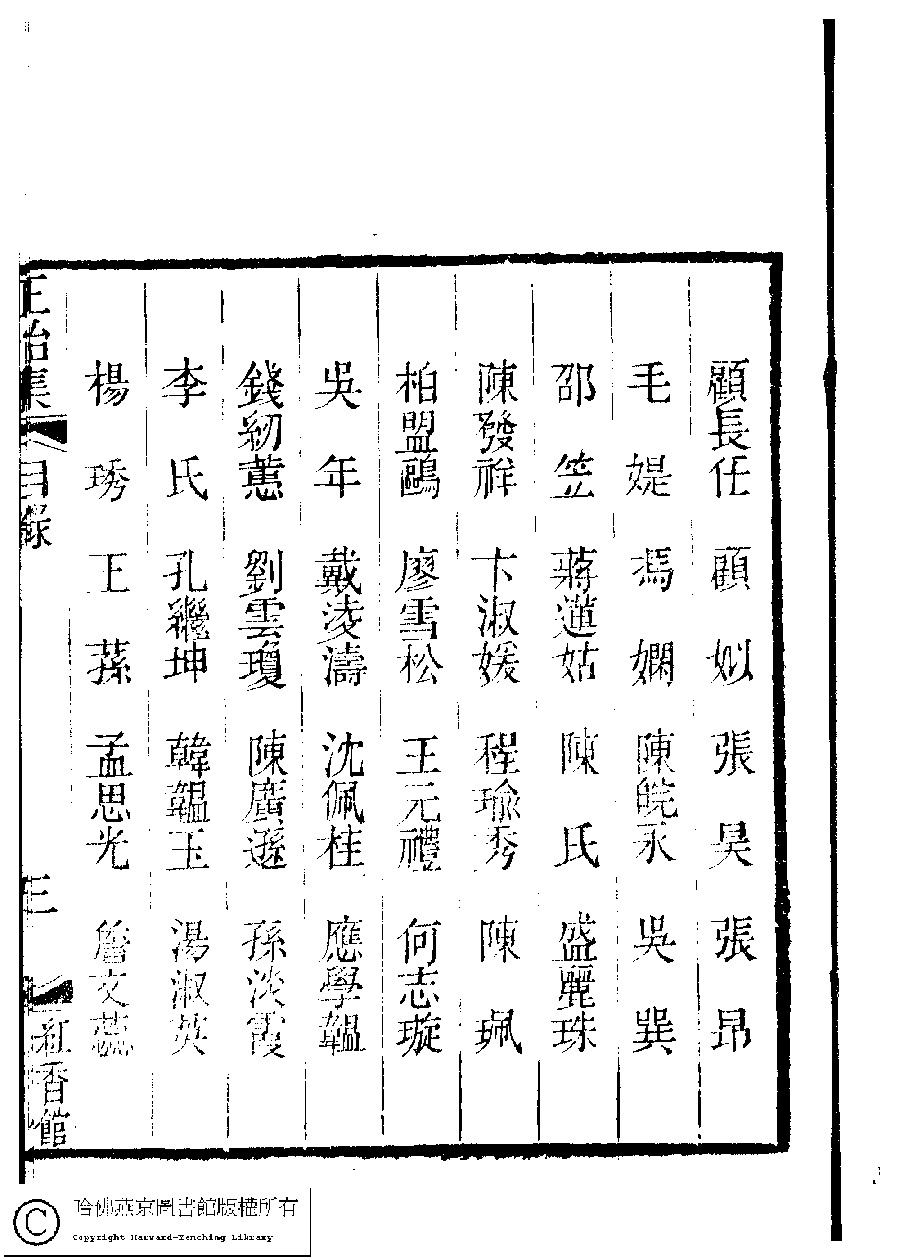 顧長任 顧姒 張昊 張昂
毛媞 馮嫻 陳皖永 吳巽
邵笠 蔣蓮姑 陳氏 盛麗珠
陳發祥 卞淑媛 程瑜秀 陳珮
柏盟鷗 廖雪松 王元禮 何志璇
吳年 戴淩濤 沈佩桂 應學韞
錢紉蕙 劉雲瓊 陳廣遜 孫淡霞
李氏 孔繼坤 韓韞玉 湯淑英
楊琇 王蓀 孟思光 詹文蕊
正始集 目錄 三 紅香館
哈佛燕京圖書館版權所有
Copyright Harvard-Yenching Library